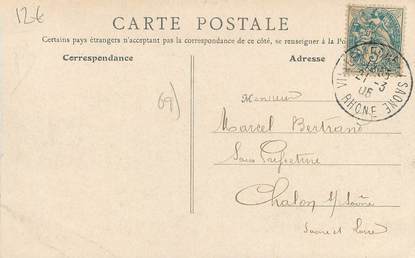 12€
CARTE POSTALE
Certains pays étrangers n'acceptant pas la correspondance de ce côté, se renseigner à la
Correspondance
Adresse
69)
Monsieur
Marcel Bertrand
Sous Préfecture
Chalon s/ Saône
Saone et Loire
SAONE
21 -3
06
RHONE